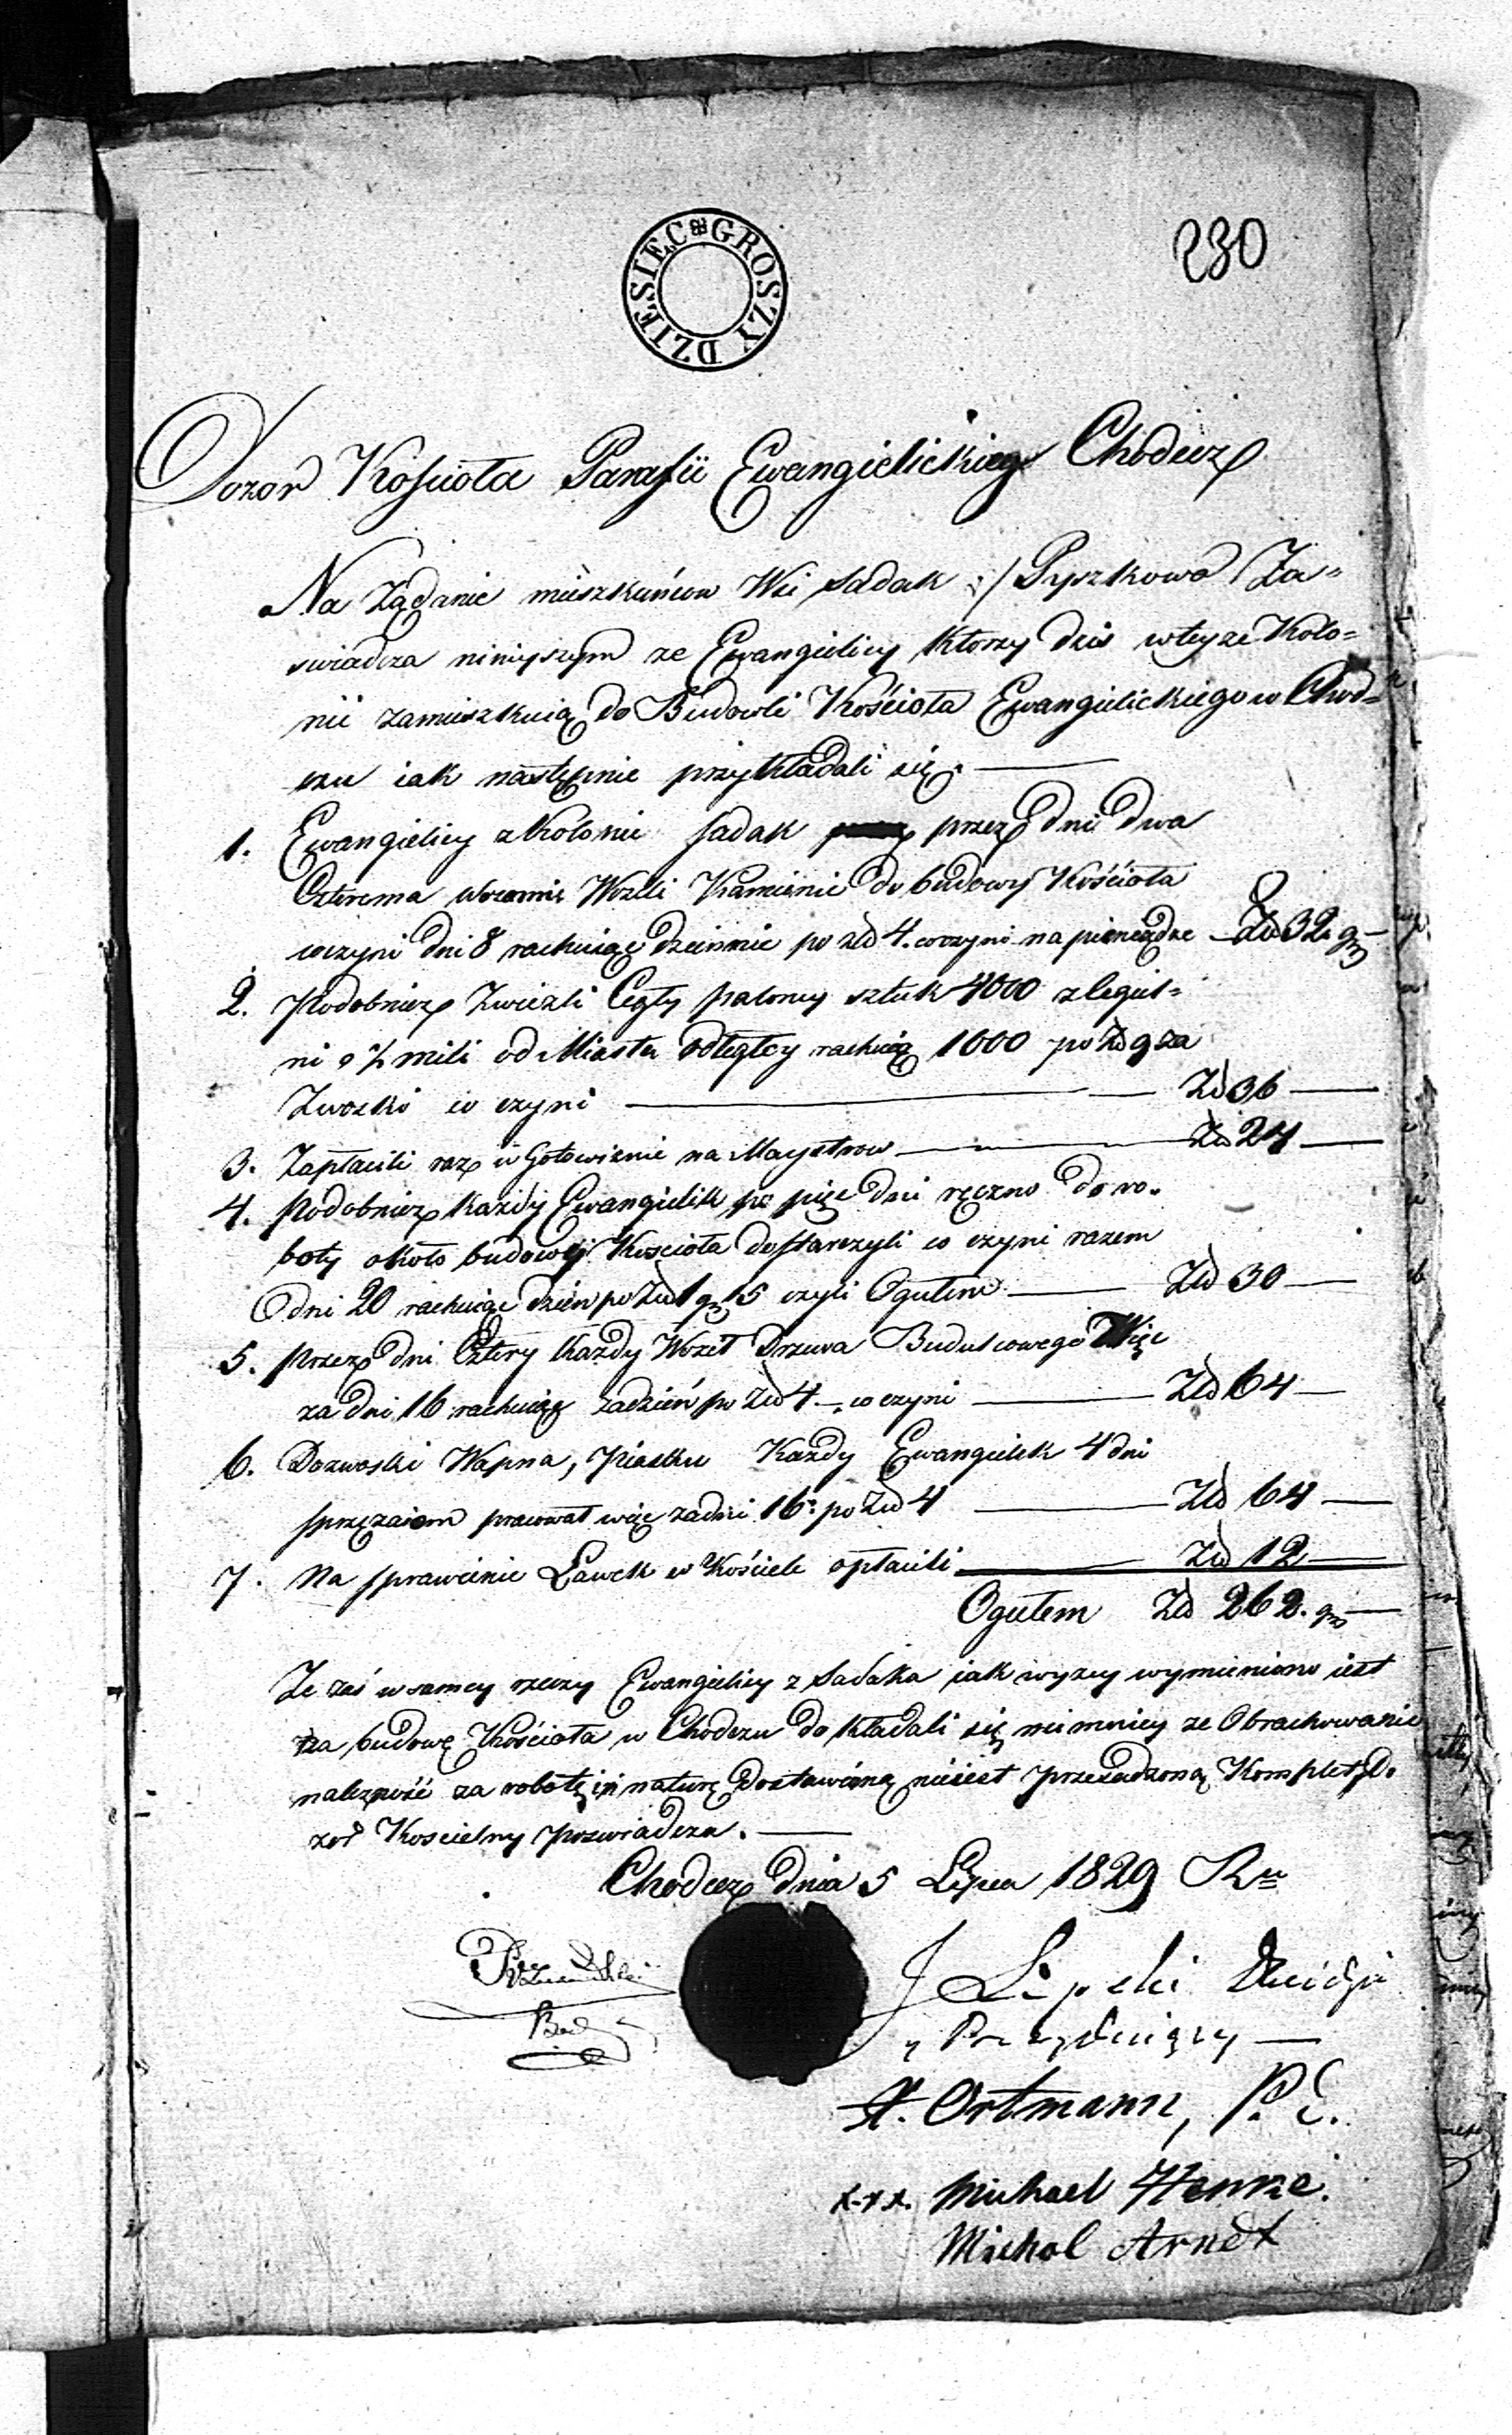 DZIESIEC GROSZY
230
Dozor Kościoła Parafii Ewangielickiey Chodecz
Na Ządanie mieszkańcow Wsi Sadak :/ Pyszkowo Za=
swiadcza ninieyszym ze Ewangielicy ktorzy dzis w teyze Kolo=
nii zamieszkuią do Budowli Kościoła Ewangielickiego w Chod=
czu iak następnie przykładali się. —
1. Ewangielicy z Kolonii Sadak przez dni dwa
Czterema wozami Wozili Kamienie do budowy Kościoła
co czyni dni 8 rachuiąc dziennie po złł 4. co czyni na pieniądze Zł 32 gr —
2. Podobniez Zwiezli Cegły paloney sztuk 4000 z Cegiel=
ni o ½ mili od Miasta odległey rachuią 1000 po Zł 9 za
Zwozkę co czyni — Zł 36 —
3. Zapłacili raz w Gotowiznie na Maystrow — Zł 24 —
4. Podobniez każdy Ewangielik po pięc dni ręczno do ro=
boty około budowy Kościoła dostarczyli co czyni razem
dni 20 rachuiąc dzień po Zł 1 gr 15 czyli Ogułem — Zł 30 —
5. Przez dni Cztery każdy Woził Drzewa Budulcowego Więc
za dni 16 rachuiąc za dzień po Zł 4 — co czyni — Zł 64 —
6. Do zwoski Wapna, Piasku Kazdy Ewangielik 4 dni
sprzęzaiem pracował więc za dni 16. po Zł 4 — Zł 64 —
7. Na sprawienie Ławek w Kościele opłacili — Zł 12 —
Ogułem Zł 262. gr —
Ze zaś w samey rzeczy Ewangielicy z Sadaka iak wyzey wymieniono iest
za budowę Kościoła w Chodczu do kładali się niemniey ze Obrachowanie
należność za robotę i in naturę dostawioną nie iest przesadzoną Komplet Do
zor Koscielny poswiadcza. —
Chodecz dnia 5 Lipca 1829 Ru
J Lipski Sędzia
Prezyduiący —
A. Ortmann, P. E.
x x x. Michael Henke.
Michal Arndt